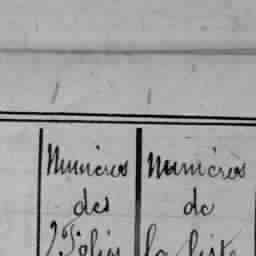 Numéros Numéros
des de
la liste